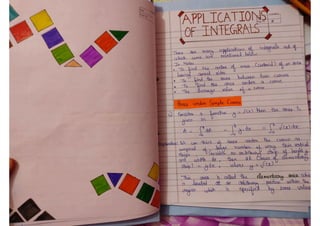 APPLICATIONS
OF INTEGRALS
There are many applications of integrals out of
which some are mentioned below
To find the area of
having curved sides
To find the area between two curves
To find the area under a curve
The average value of a curve
Area under Simple Curves
Consider a function y = f(x) then the area is
given as
We can think of area under the curve as
composed of large number of very thin vertical
strips. Consider an arbitrary strip of height y
and width dx, then dA (area of elementary
strip) = y dx, where y = f(x)
This area is called the elementary area which
is located at an arbitrary position within the
region which is specified by some value